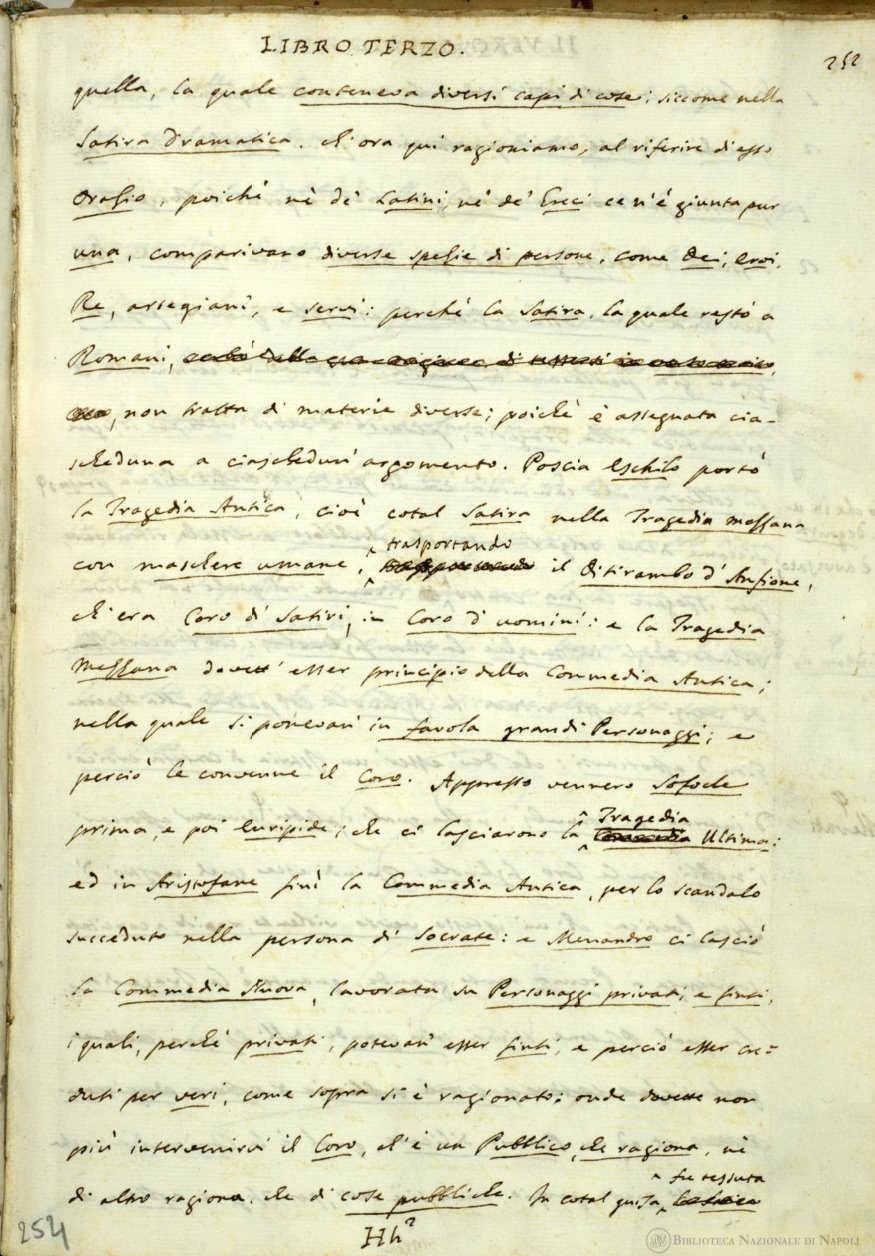 LIBRO TERZO.
252
quella, la quale conteneva diversi capi di cose; siccome nella
Satira Dramatica, ch'ora qui ragioniamo, al riferire di esso
Orazio, poichè nè de' Latini, nè de' Greci ce n'è giunta pur
una, comparivano diverse spezie di persone, come Dei, Eroi,
Re, artegiani, e servi: perchè la Satira, la quale restò a
Romani,
non tratta di materie diverse; poichè è assegnata cia-
scheduna a ciaschedun' argomento. Poscia Eschilo portò
la Tragedia Antica, cioè cotal Satira nella Tragedia mezzana
trasportando
con maschere umane, il Ditirambo d'Anfione,
ch'era Coro di Satiri, in Coro d'uomini: e la Tragedia
mezzana dovett' esser principio della Commedia Antica;
nella quale si ponevan in favola grandi Personaggi; e
perciò le convenne il Coro. Appresso vennero Sofocle
prima, e poi Euripide; che ci lasciarono la Tragedia Ultima:
ed in Aristofane finì la Commedia Antica, per lo scandalo
succeduto nella persona di Socrate: e Menandro ci lasciò
la Commedia Nuova, lavorata su Personaggi privati, e finti,
i quali, perchè privati, potevan esser finti, e perciò esser cre-
duti per veri, come sopra si è ragionato: onde dovette non
più intervenirvi il Coro, ch'è un Pubblico, che ragiona, nè
di altro ragiona, che di cose pubbliche. In cotal guisa fu tessuta
Hh2
254
BIBLIOTECA NAZIONALE DI NAPOLI